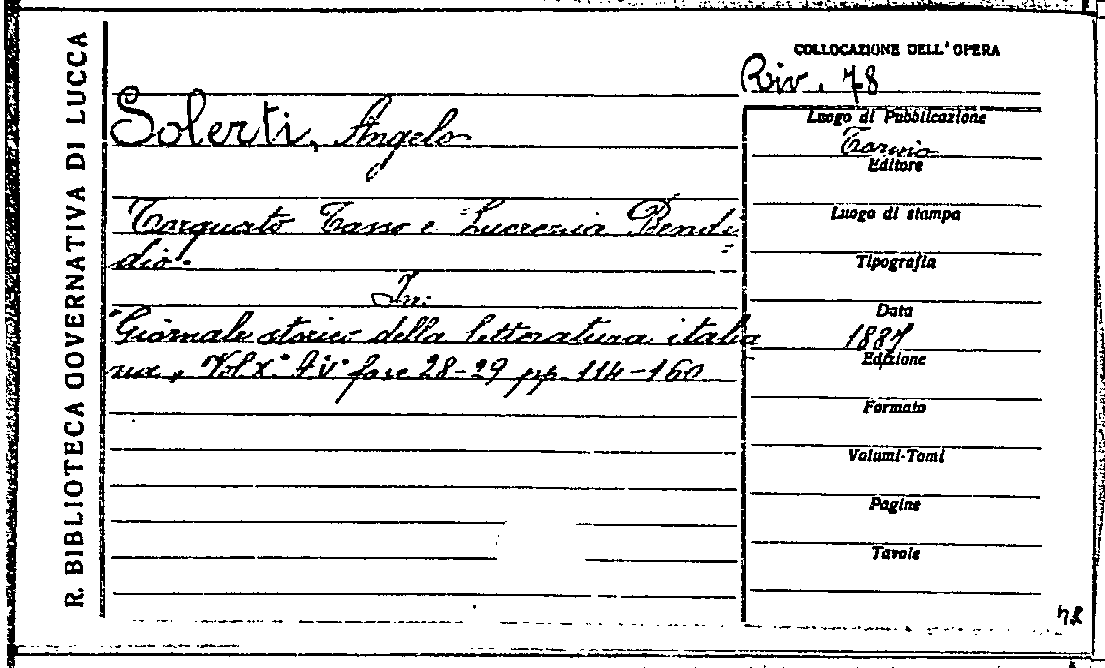 R. BIBLIOTECA GOVERNATIVA DI LUCCA
COLLOCAZIONE DELL'OPERA
Riv. 78
Solerti, Angelo
Torquato Tasso e Lucrezia Bendi=
dio.
In:
"Giornale storico della letteratura italia
na, Vol X° fasc 28-29 pp. 114-160
Luogo di Pubblicazione
Torino
Editore
Luogo di stampa
Tipografia
Data
1887
Edizione
Formato
Volumi-Tomi
Pagine
Tavole